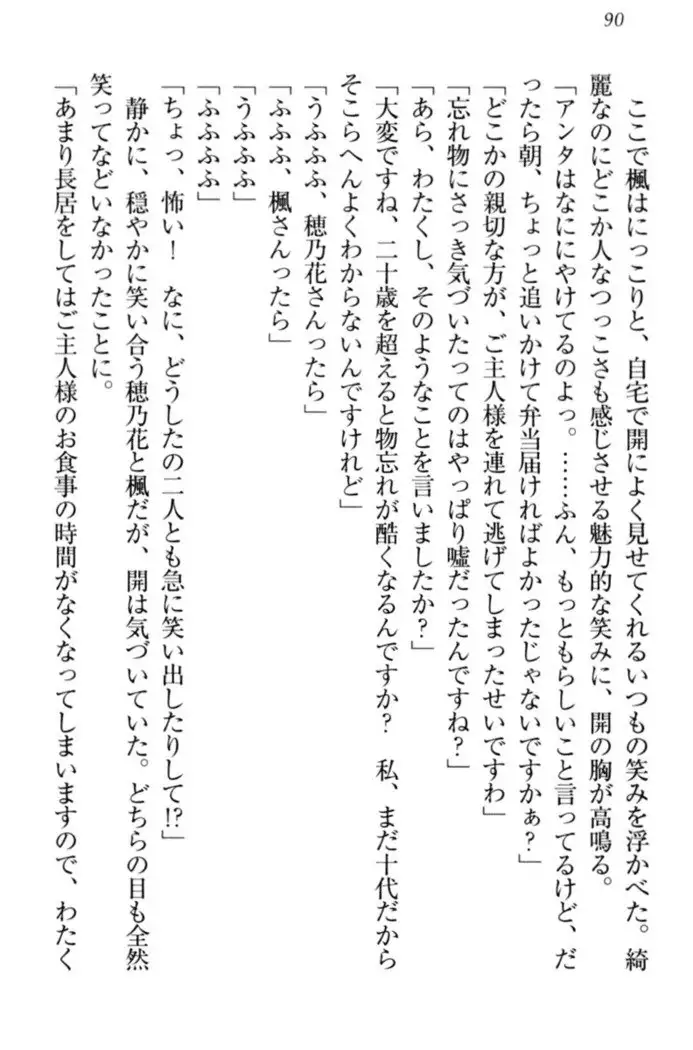 90
ここで楓はにっこりと、自宅で開によく見せてくれるいつもの笑みを浮かべた。綺
麗なのにどこか人なつっこさも感じさせる魅力的な笑みに、開の胸が高鳴る。
「アンタはなににやけてるのよっ。……ふん、もっともらしいこと言ってるけど、だ
ったら朝、ちょっと追いかけて弁当届ければよかったじゃないですかぁ?」
「どこかの親切な方が、ご主人様を連れて逃げてしまったせいですわ」
「忘れ物にさっき気づいたってのはやっぱり嘘だったんですね?」
「あら、わたくし、そのようなことを言いましたか?」
「大変ですね、二十歳を超えると物忘れが酷くなるんですか?　私、まだ十代だから
そこらへんよくわからないんですけれど」
「うふふふ、穂乃花さんったら」
「ふふふ、楓さんったら」
「うふふふ」
「ふふふふ」
「ちょっ、怖い!　なに、どうしたの二人とも急に笑い出したりして!?」
静かに、穏やかに笑い合う穂乃花と楓だが、開は気づいていた。どちらの目も全然
笑ってなどいなかったことに。
「あまり長居をしてはご主人様のお食事の時間がなくなってしまいますので、わたく